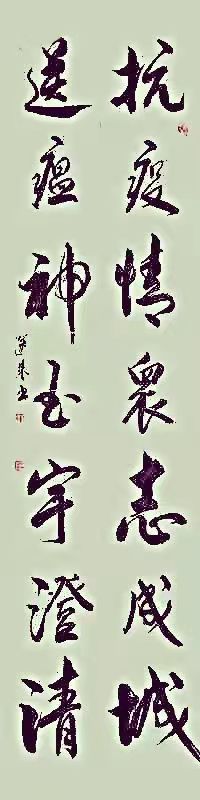 抗疫情眾志成城
送瘟神玉宇澄清